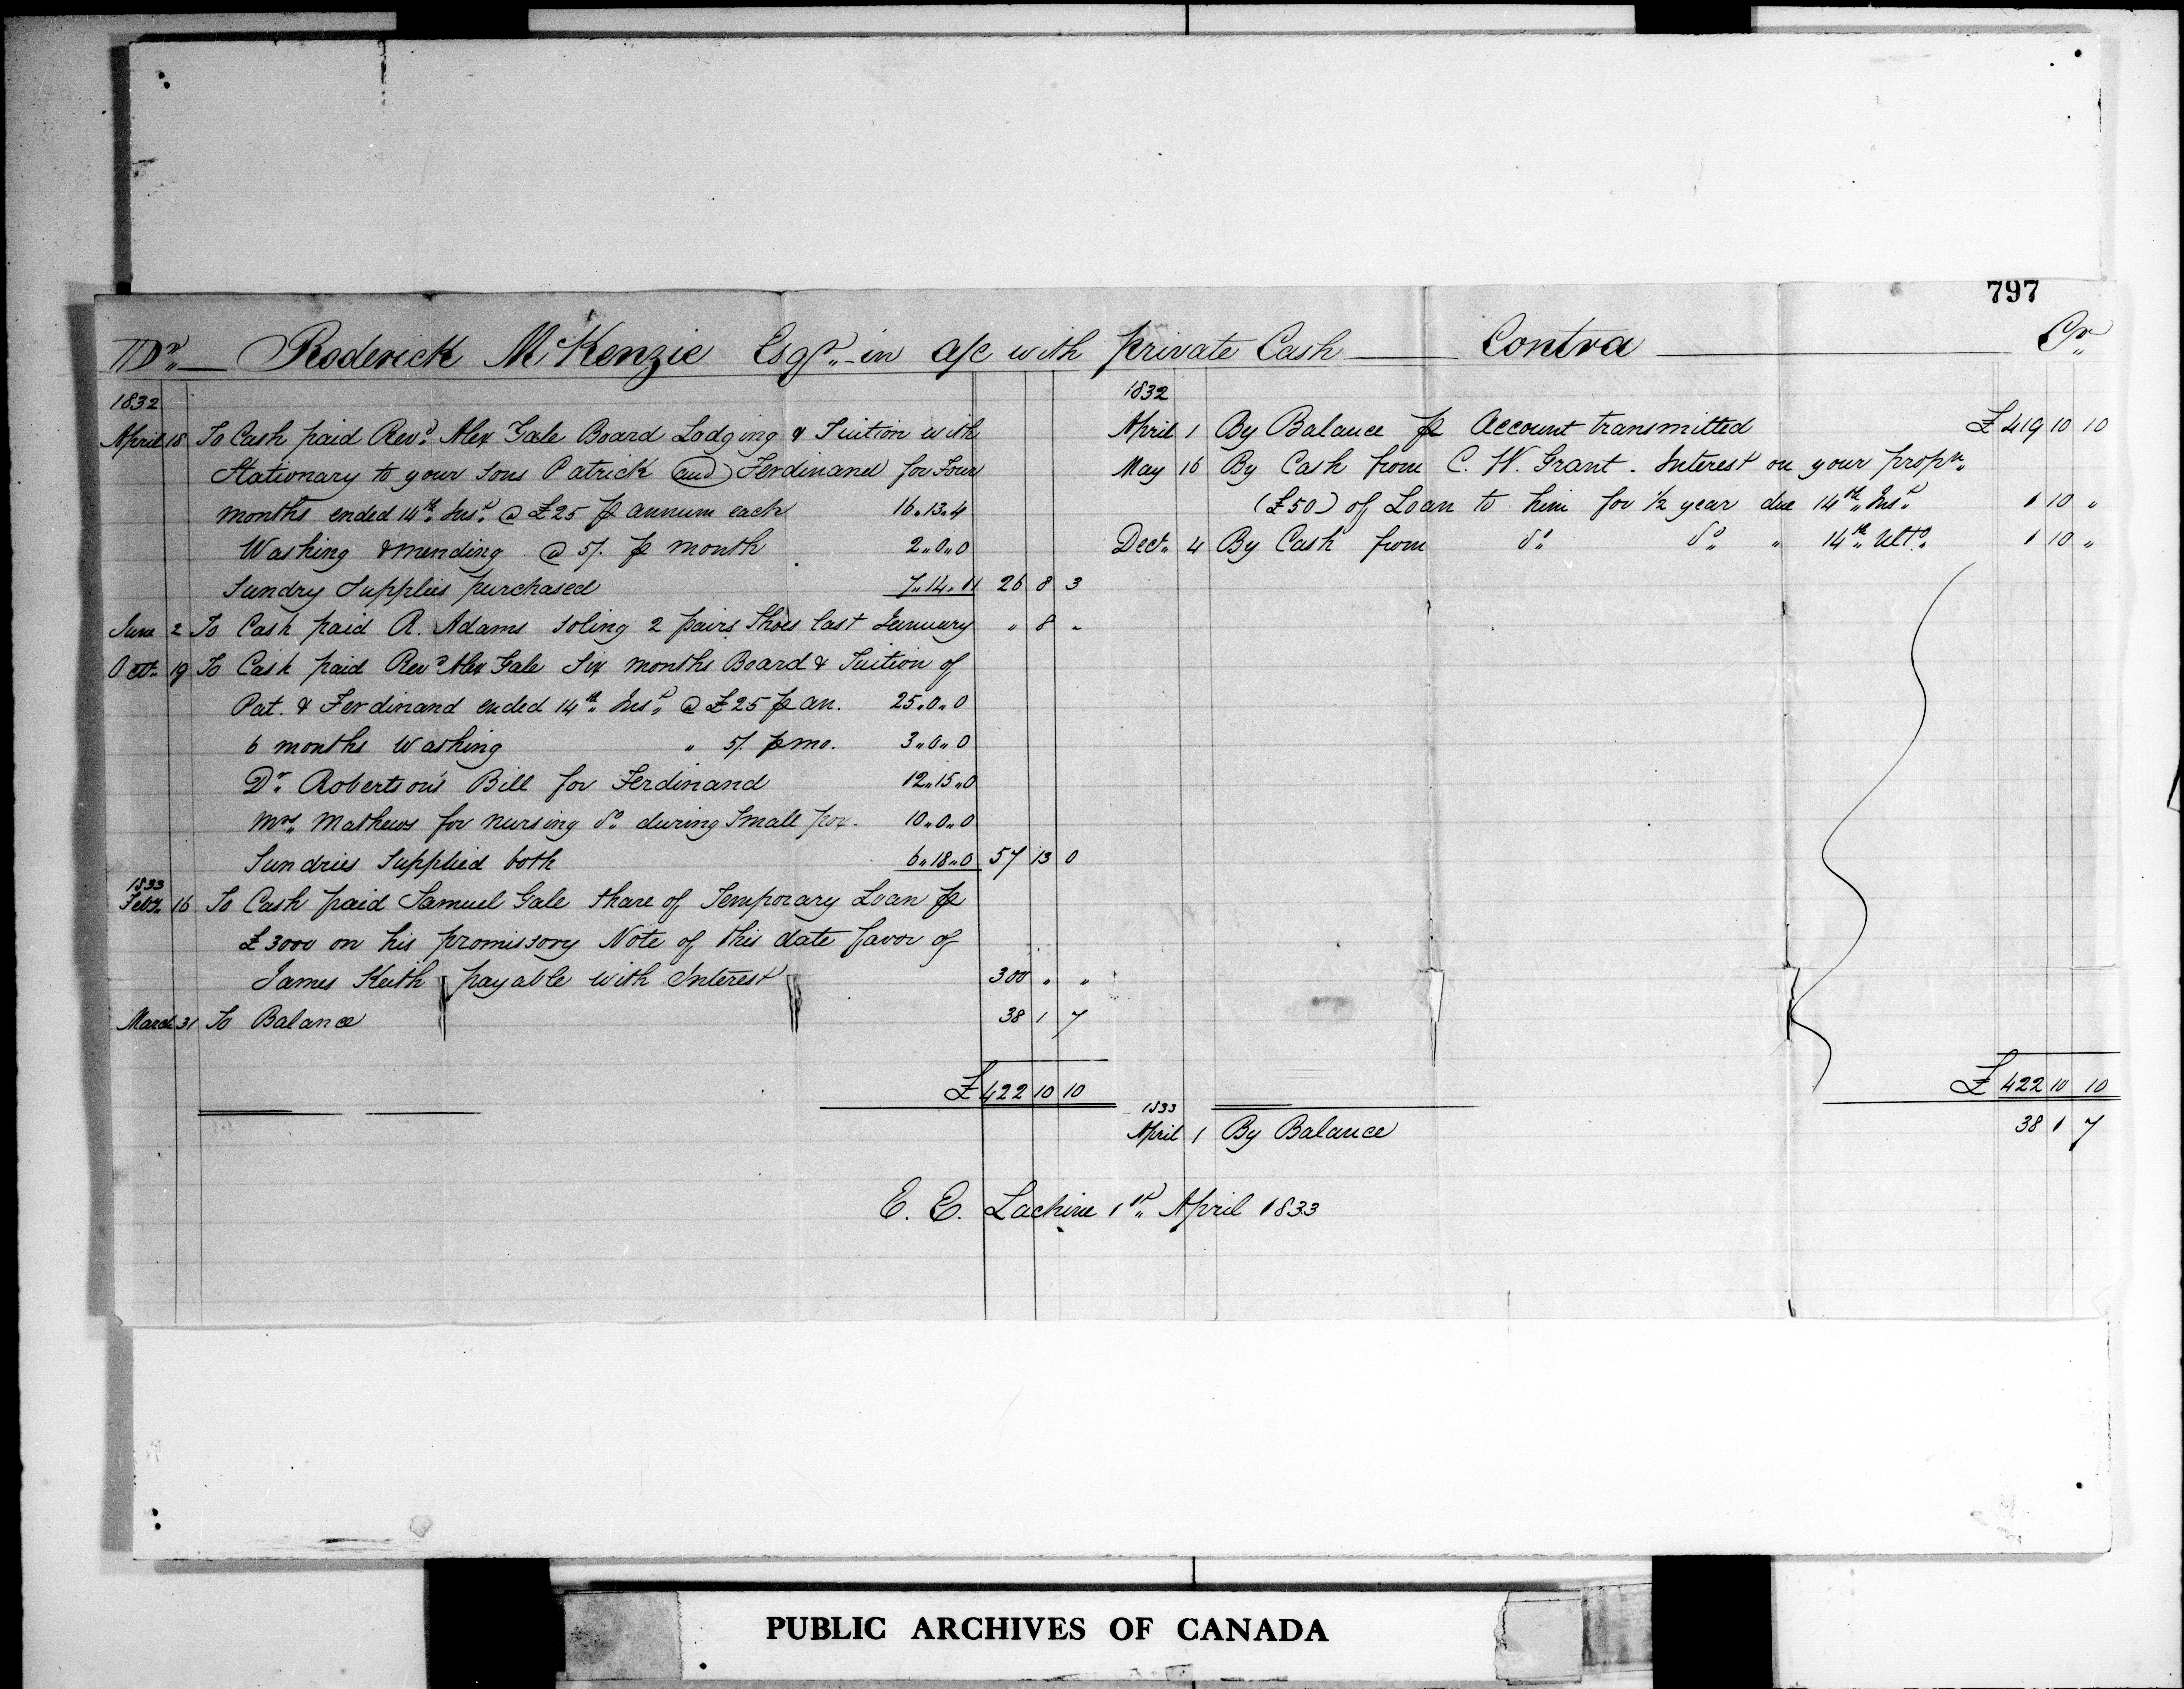 797
Dr. Roderick McKenzie Esqr. in a/c with private Cash Contra Cr.
1832
April 18 To Cash paid Revd. Alex Gale Board Lodging & Tuition with
Stationary to your sons Patrick and Ferdinand for Four
months ended 14th Inst. @ £25 p annum each 16 " 13 " 4
Washing & mending @ 5/. p month 2 " 0 " 0
Sundry Supplies purchased 7 " 14 " 11 26 8 3
June 2 To Cash paid R. Adams soling 2 pairs Shoes last January " 8 "
Octr. 19 To Cash paid Revd. Alex Gale Six months Board & Tuition of
Pat. & Ferdinand ended 14th Inst. @ £25 p an. 25 " 0 " 0
6 months Washing " 5/. p mo. 3 " 0 " 0
Dr. Robertson's Bill for Ferdinand 12 " 15 " 0
Mrs. Mathews for nursing do. during Small pox. 10 " 0 " 0
Sundries Supplied both 6 " 18 " 0 57 13 0
1833
Feby. 16 To Cash paid Samuel Gale share of Temporary Loan p
£3000 on his promissory Note of this date favor of
James Keith payable with Interest 300 " "
March 31 To Balance 38 1 7
£ 422 10 10
1832
April 1 By Balance p Account transmitted £ 419 10 10
May 16 By Cash from C. W. Grant. Interest on your propn.
(£50) of Loan to him for 1/2 year due 14th Inst. 1 10 "
Decr. 4 By Cash from do. do. " 14th Ulto. 1 10 "
£ 422 10 10
1833
April 1 By Balance 38 1 7
E. E. Lachine 1st April 1833
PUBLIC ARCHIVES OF CANADA